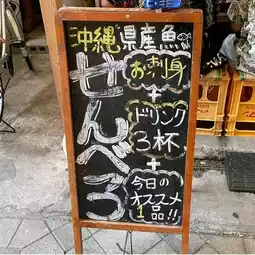 沖縄県産魚
せんべろ
お刺身
+
ドリンク
3杯
+
今日の
オススメ
1品!!